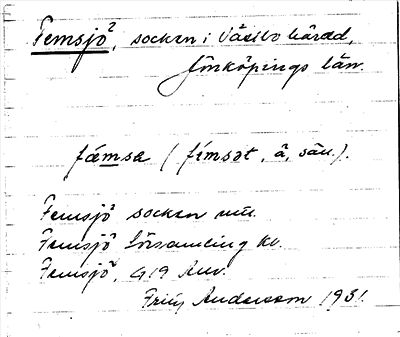 Femsjö², socken i Västbo härad,
Jönköpings län.
fämsa (fímsət, ä, säu.).
Femsjö socken
Femsjö församling kv.
Femsjö, G19
Andersson 1931.